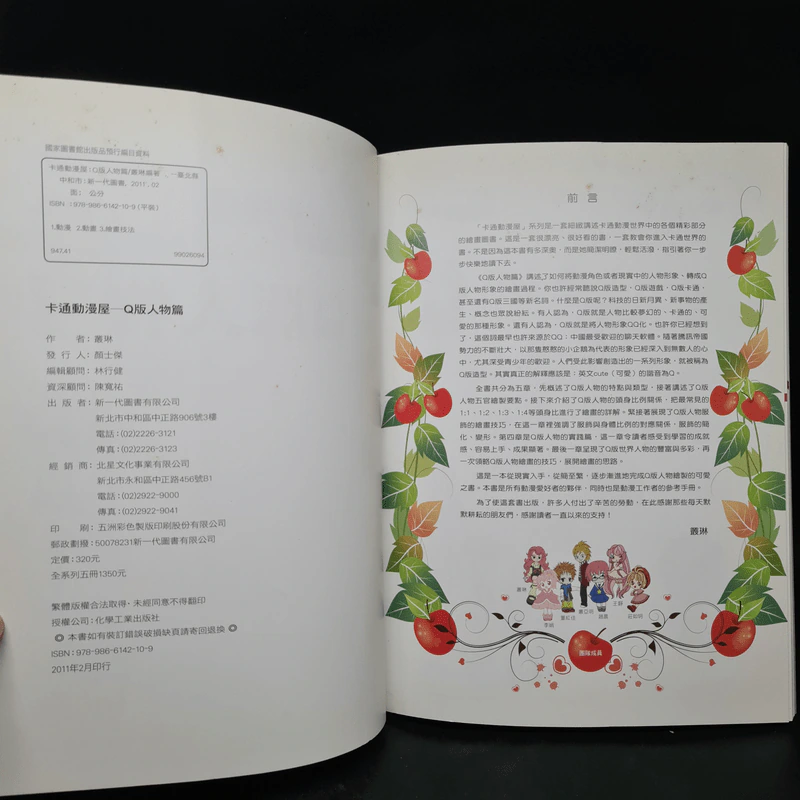 國家圖書館出版品預行編目資料
卡通動漫屋：Q版人物篇/叢琳編著. 一臺北縣
中和市：新一代圖書, 2011. 02
面； 公分
ISBN：978-986-6142-10-9 (平裝)
1.動漫 2.動畫 3.繪畫技法
947.41 99026094
卡通動漫屋—Q版人物篇
作 者：叢琳
發 行 人：顏士傑
編輯顧問：林行健
資深顧問：陳寬祐
出 版 者：新一代圖書有限公司
新北市中和區中正路906號3樓
電話：(02)2226-3121
傳真：(02)2226-3123
經 銷 商：北星文化事業有限公司
新北市永和區中正路456號B1
電話：(02)2922-9000
傳真：(02)2922-9041
印 刷：五洲彩色製版印刷股份有限公司
郵政劃撥：50078231新一代圖書有限公司
定價：320元
全系列五冊1350元
繁體版權合法取得・未經同意不得翻印
授權公司：化學工業出版社
◎ 本書如有裝訂錯誤破損缺頁請寄回退換 ◎
ISBN：978-986-6142-10-9
2011年2月印行
前 言
「卡通動漫屋」系列是一套細緻講述卡通動漫世界中的各個精彩部分
的繪畫圖書。這是一套很漂亮、很好看的書，一套教會你進入卡通世界的
書。不是因為這本書有多深奧，而是她簡潔明瞭，輕鬆活潑，指引著你一步
步快樂地讀下去。
《Q版人物篇》講述了如何將動漫角色或者現實中的人物形象，轉成Q
版人物形象的繪畫過程。你也許經常聽說Q版造型、Q版遊戲、Q版卡通，
甚至還有Q版三國等新名詞。什麼是Q版呢？科技的日新月異，新事物的產
生，概念也眾說紛紜。有人認為，Q版就是人物比較夢幻的、卡通的、可
愛的那種形象。還有人認為，Q版就是將人物形象QQ化。也許你已經想到
了，這個詞最早也許來源於QQ：中國最受歡迎的聊天軟體。隨著騰訊帝國
勢力的不斷壯大，以那隻憨憨的小企鵝為代表的形象已經深入到無數人的心
中，尤其深受青少年的歡迎。人們受此影響創造出的一系列形象，就被稱為
Q版造型。其實真正的解釋應該是：英文cute（可愛）的諧音為Q。
全書共分為五章，先概述了Q版人物的特點與類型，接著講述了Q版
人物五官繪製要點。接下來介紹了Q版人物的頭身比例關係，把最常見的
1:1、1:2、1:3、1:4等頭身比進行了繪畫的詳解。緊接著展現了Q版人物服
飾的繪畫技巧，在這一章裡強調了服飾與身體比例的對應關係，服飾的簡
化、變形。第四章是Q版人物的實踐篇，這一章令讀者感受到學習的成就
感、容易上手、成果顯著。最後一章呈現了Q版世界人物的豐富與多彩，再
一次領略Q版人物繪畫的技巧，展開繪畫的思路。
這是一本從現實入手，從簡至繁，逐步漸進地完成Q版人物繪製的可愛
之書。本書是所有動漫愛好者的夥伴，同時也是動漫工作者的參考手冊。
為了使這套書出版，許多人付出了辛苦的勞動，在此感謝那些每天默
默耕耘的朋友們。感謝讀者一直以來的支持！
叢琳
團隊成員